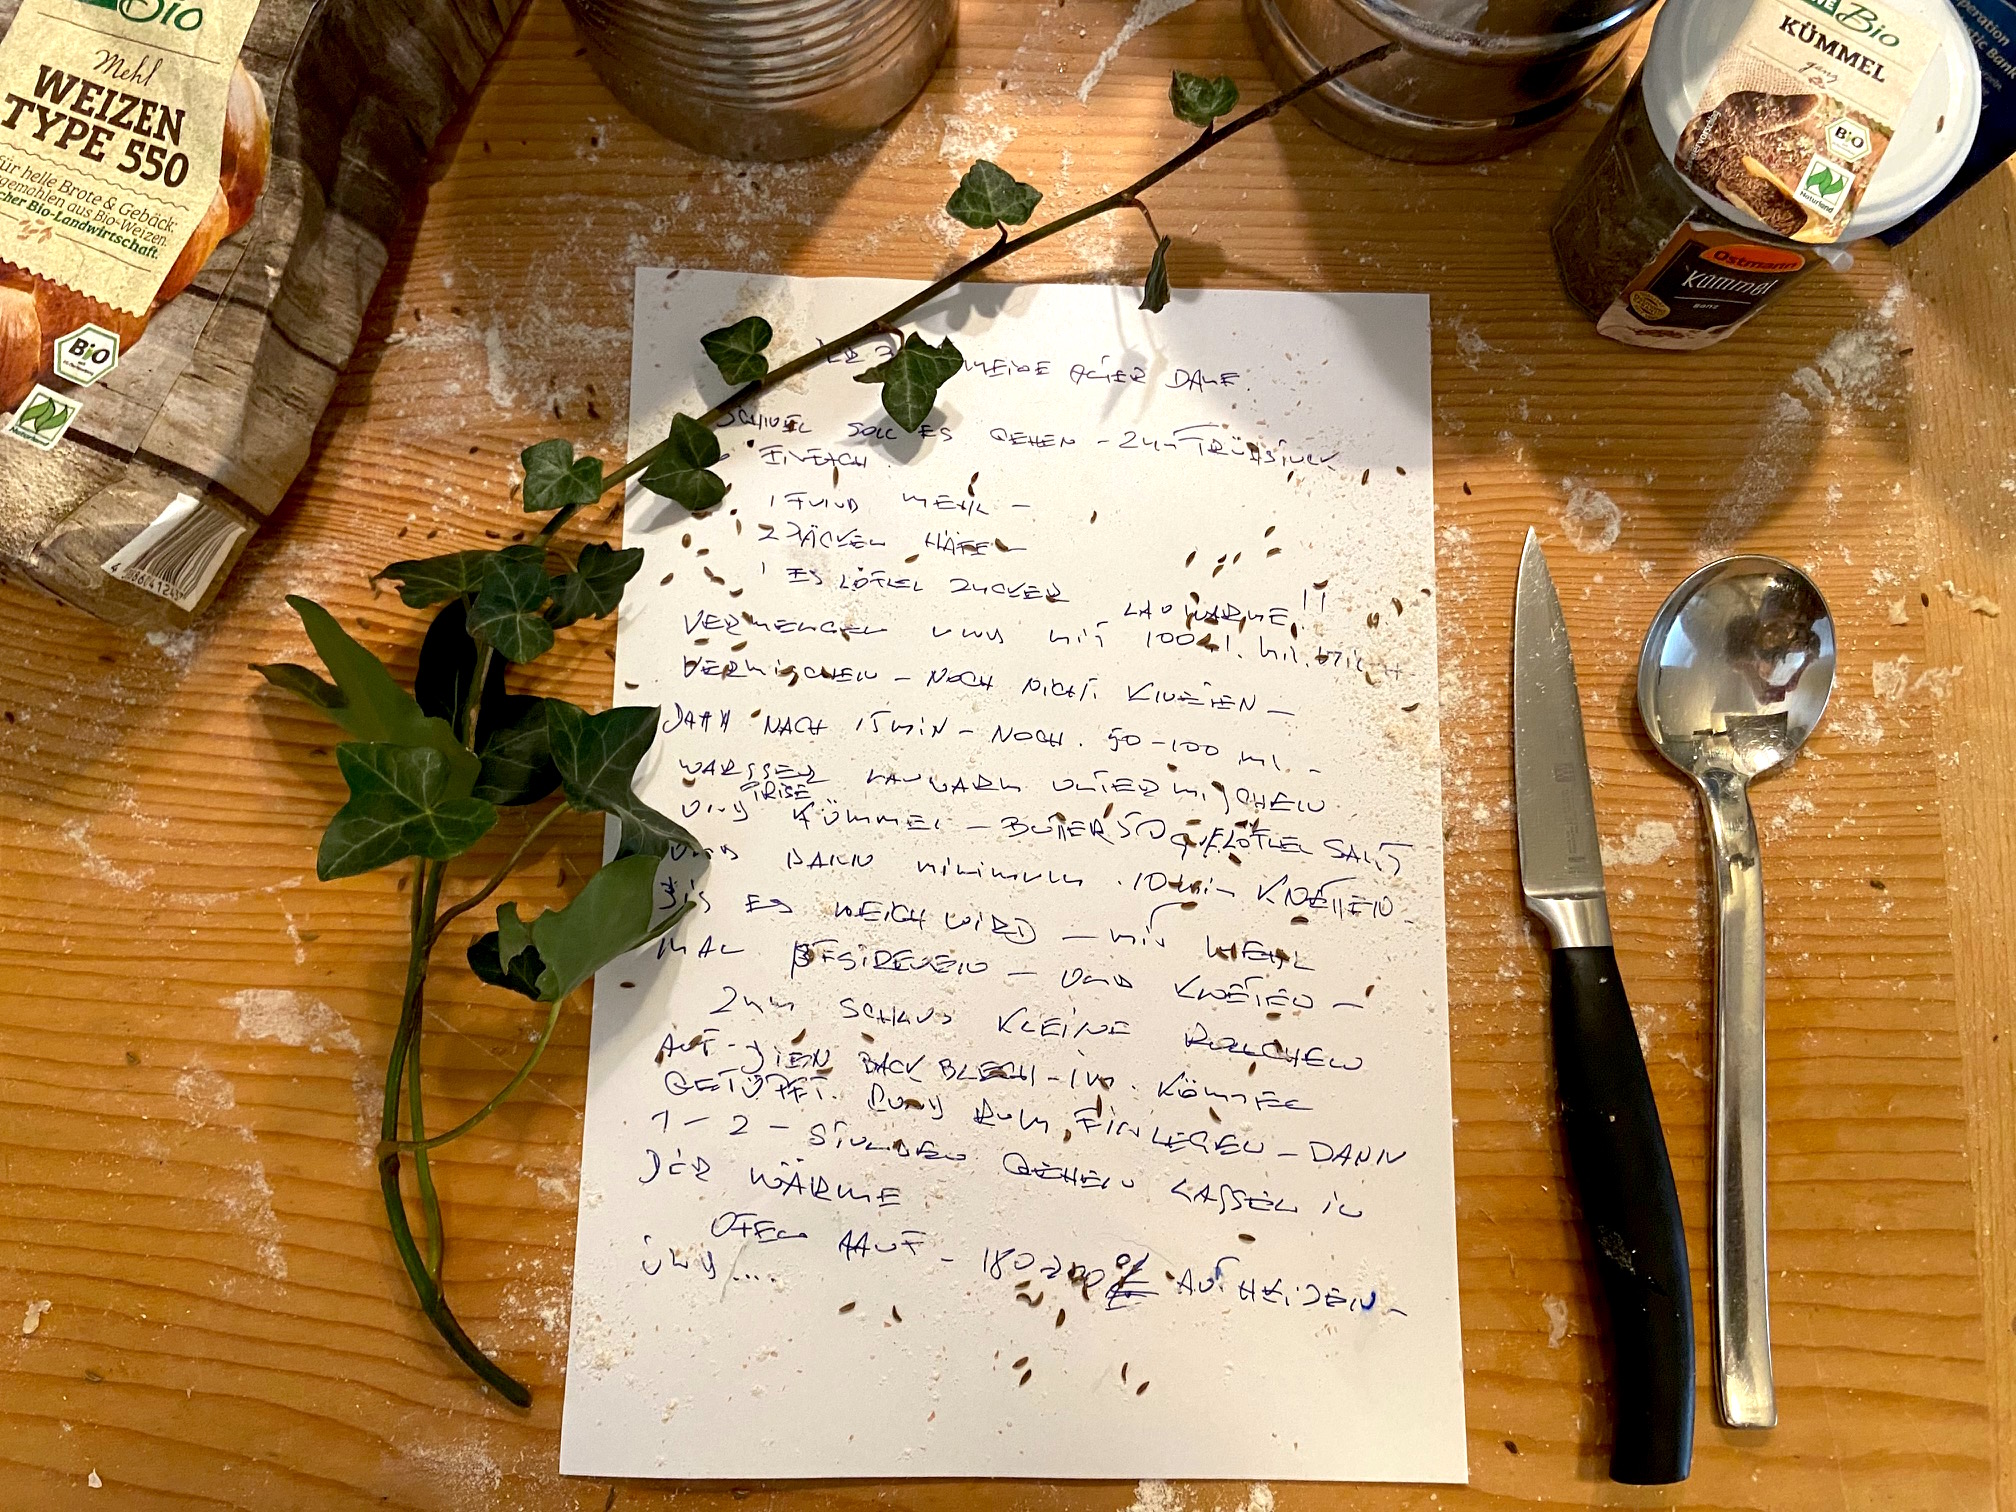 Bio
Mehl
WEIZEN
TYPE 550
für helle Brote & Gebäck
gemahlen aus Bio-Weizen
Bio-Landwirtschaft.
BiO
Naturland
Bio
KÜMMEL
ganz
BiO
Naturland
Ostmann
Kümmel
GANZ
DAME
SOLL ES GEHEN - ZUM FRÜHSTÜCK
EINFACH
1 FUND MEHL -
2 PÄCKEN HÄFEN
1 ESLÖFLEL ZUCKER
LAUWARME!!
VERMENGEN UND MIT 100 ml. MILCH
VERMISCHEN - NOCH NICHT KNETEN -
DANN NACH 15 MIN - NOCH. 50-100 ml -
WARSSER LAUWARM UNTERMISCHEN
PRISE
UND KÜMMEL - BUTTER 50 g LÖFLEL SALT
UND DANN MINIMUM 10 MIN KNETTEN
BIS ES WEICH WIRD - MIT MEHL
MAL BESTREUEN - UND KNETEN -
ZUM SCHLUS KLEINE ROLLCHEN
AUF DIEN BACKBLECH - IN KÜMMEL
GETÜPFT. RUND RUM EINLEGEN - DANN
1 - 2 - STUNDEN GEHEN LASSEN IN
DER WÄRME
OFEN AAUF - 180 200 AUFHEIDEN -
UND ....